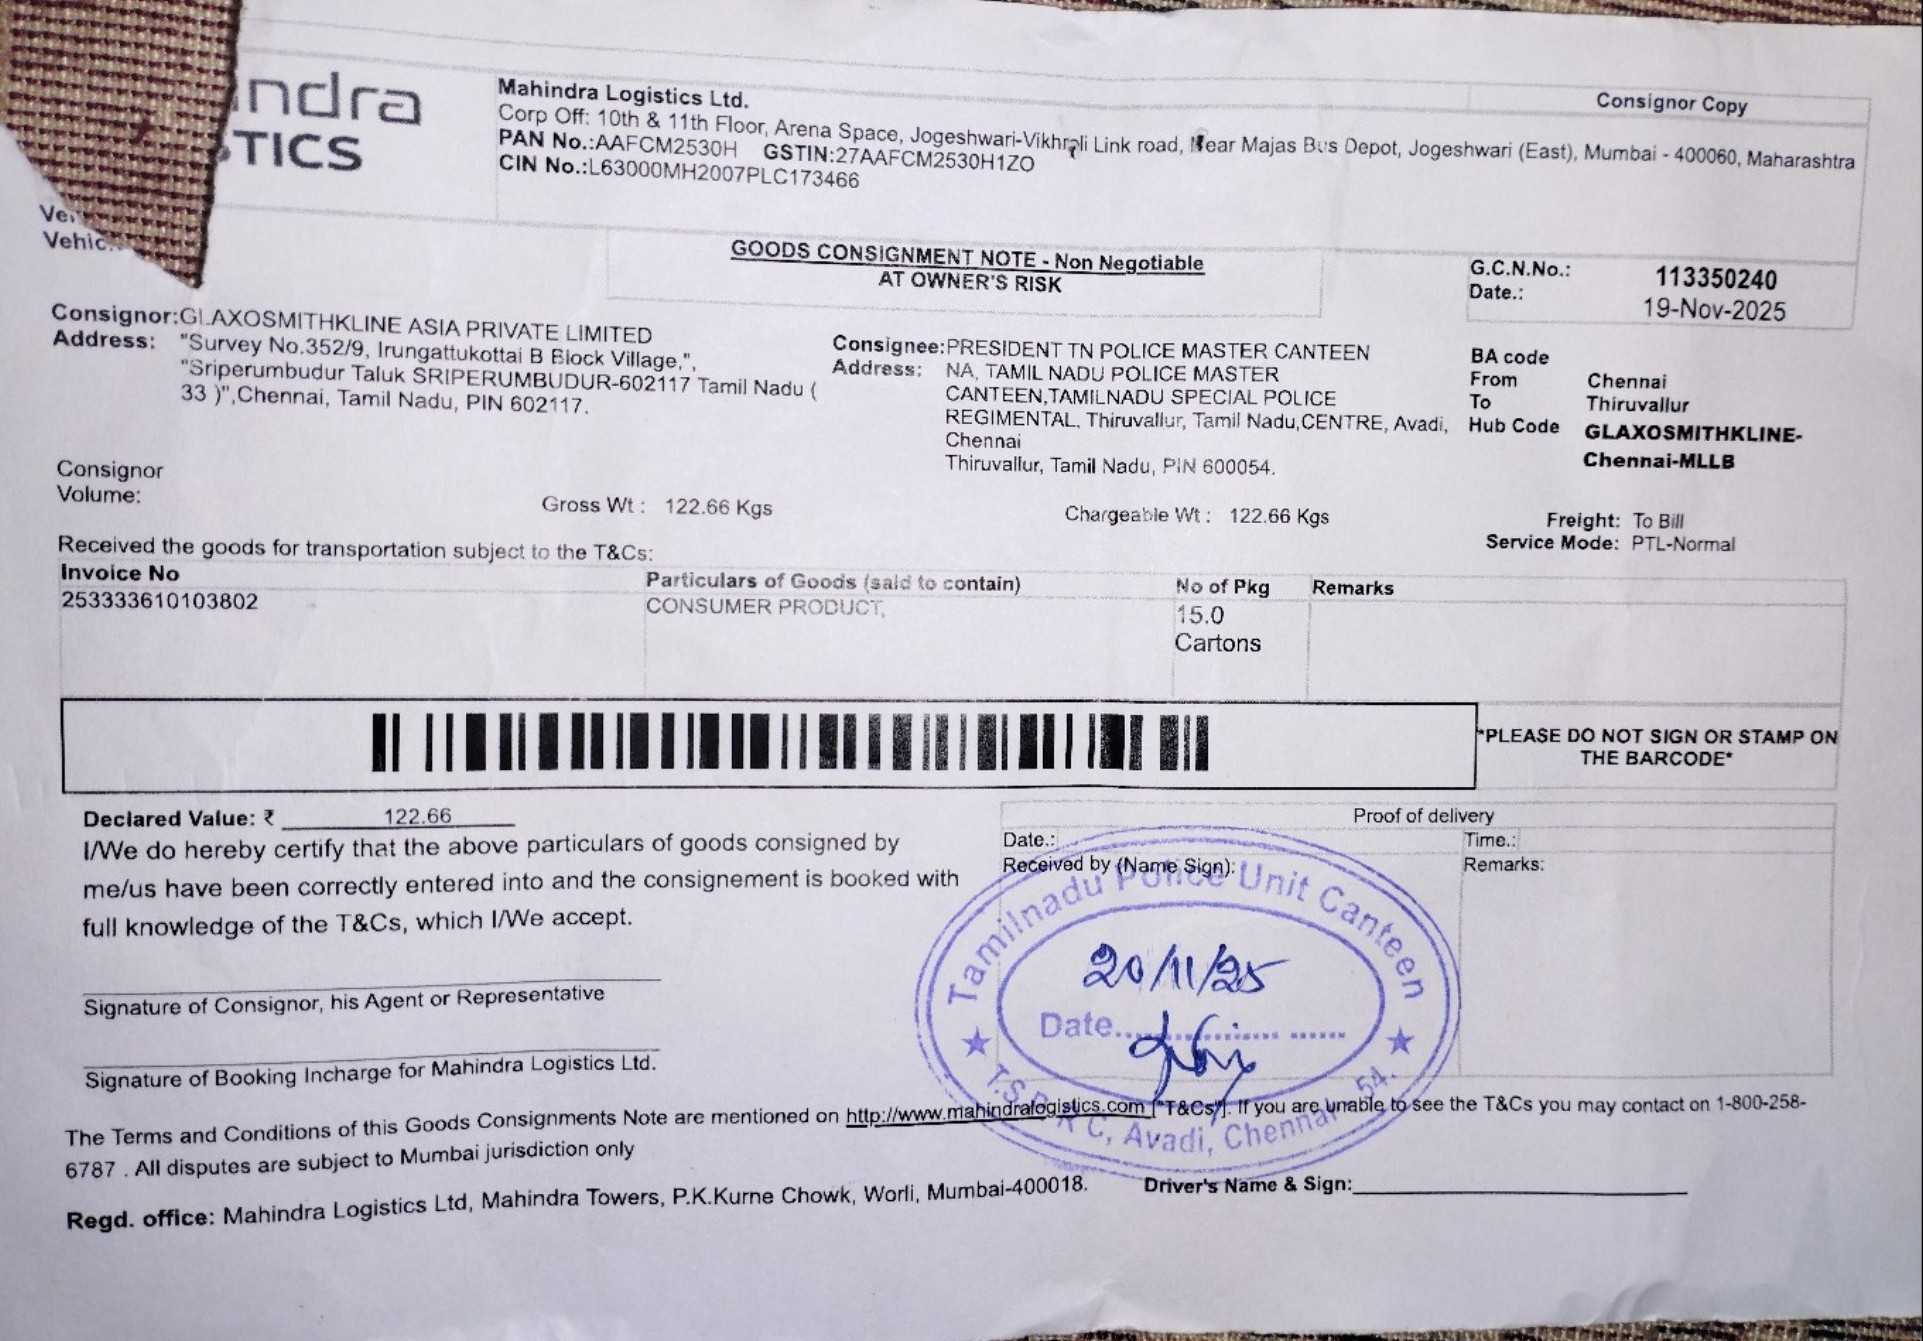 ndra
STICS
Mahindra Logistics Ltd.
Corp Off: 10th & 11th Floor, Arena Space, Jogeshwari-Vikhroli Link road, Near Majas Bus Depot, Jogeshwari (East), Mumbai - 400060, Maharashtra
PAN No.:AAFCM2530H GSTIN:27AAFCM2530H1ZO
CIN No.:L63000MH2007PLC173466
Consignor Copy
GOODS CONSIGNMENT NOTE - Non Negotiable
AT OWNER'S RISK
G.C.N.No.: 113350240
Date.: 19-Nov-2025
Consignor:GLAXOSMITHKLINE ASIA PRIVATE LIMITED
Address: "Survey No.352/9, Irungattukottai B Block Village,",
"Sriperumbudur Taluk SRIPERUMBUDUR-602117 Tamil Nadu (
33 )",Chennai, Tamil Nadu, PIN 602117.
Consignee:PRESIDENT TN POLICE MASTER CANTEEN
Address: NA, TAMIL NADU POLICE MASTER
CANTEEN,TAMILNADU SPECIAL POLICE
REGIMENTAL, Thiruvallur, Tamil Nadu,CENTRE, Avadi,
Chennai
Thiruvallur, Tamil Nadu, PIN 600054.
BA code
From Chennai
To Thiruvallur
Hub Code GLAXOSMITHKLINE-
Chennai-MLLB
Consignor
Volume:
Gross Wt : 122.66 Kgs
Chargeable Wt : 122.66 Kgs
Freight: To Bill
Service Mode: PTL-Normal
Received the goods for transportation subject to the T&Cs:
Invoice No Particulars of Goods (said to contain) No of Pkg Remarks
253333610103802 CONSUMER PRODUCT, 15.0
Cartons
*PLEASE DO NOT SIGN OR STAMP ON
THE BARCODE*
Declared Value: ₹ 122.66
I/We do hereby certify that the above particulars of goods consigned by
me/us have been correctly entered into and the consignement is booked with
full knowledge of the T&Cs, which I/We accept.
Signature of Consignor, his Agent or Representative
Signature of Booking Incharge for Mahindra Logistics Ltd.
Proof of delivery
Date.: Time.:
Received by (Name Sign): Remarks:
Tamilnadu Police Unit Canteen
20/11/25
Date
T.S.P R C, Avadi, Chennai - 54.
The Terms and Conditions of this Goods Consignments Note are mentioned on http://www.mahindralogistics.com ["T&Cs"]. If you are unable to see the T&Cs you may contact on 1-800-258-
6787 . All disputes are subject to Mumbai jurisdiction only
Regd. office: Mahindra Logistics Ltd, Mahindra Towers, P.K.Kurne Chowk, Worli, Mumbai-400018.
Driver's Name & Sign: